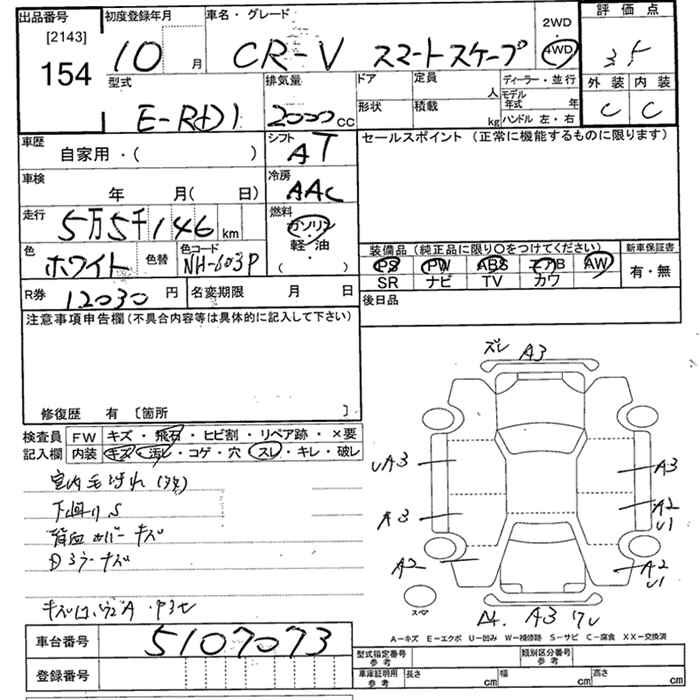 出品番号 初度登録年月 車名・グレード 2WD 4WD 評価点
[2143]
154
10 月 CR-V スマートスケープ 35
外装 内装
C C
型式 排気量 ドア 定員 人 ディーラー・並行
モデル年式 年
E-RD1 2000 cc 形状 積載 kg ハンドル 左・右
車歴 自家用・( ) シフト AT セールスポイント (正常に機能するものに限ります)
車検 年 月( 日) 冷房 AAC
走行 5万5千146 km 燃料 ガソリン・軽油
( )
色 ホワイト 色替 色コード NH-603P
装備品 (純正品に限り○をつけてください) 新車保証書
PS PW ABS エアB AW 有・無
SR ナビ TV カワ
R券 12030 円 名変期限 月 日 後日品
注意事項申告欄 (不具合内容等は具体的に記入して下さい)
修復歴 有 [箇所 ]
検査員記入欄 FW キズ・飛石・ヒビ割・リペア跡・×要
内装 キズ・汚レ・コゲ・穴・スレ・キレ・破レ
下廻りS
キズ
ズレ A3
A3
A3
A3
A2
U1
A2
A2
U1
スペア
A3 ワレ
A-キズ E-エクボ U-凹み W-補修跡 S-サビ C-腐食 XX-交換済
車台番号 5107073
登録番号
型式指定番号 参考 類別区分番号 参考
車庫証明用 参考 長さ cm 幅 cm 高さ cm